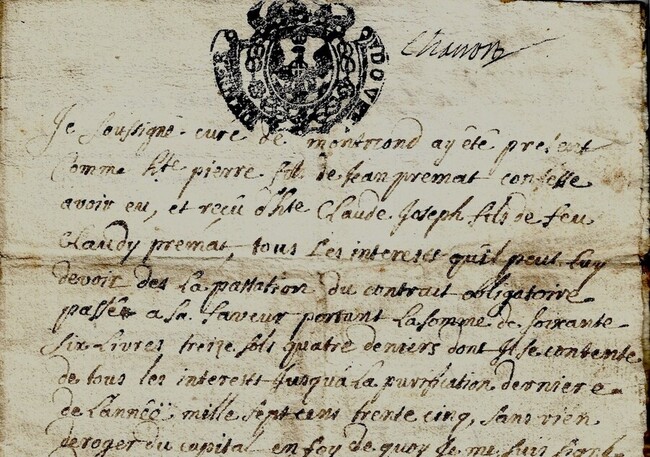 Je soussigné curé de montriond ay été présent
Comme hte pierre fils de Jean premat confesse
avoir eu, et reçu d'hte Claude Joseph fils de feu
Claudy premat, tous les interest qu'il peut luy
devoir des La passation du contrait obligatoire
passée a sa faveur portant La somme de soixante
six Livres treize sols quatre deniers dont Il se contente
de tous les interests Jusqua La purification derniere
de L'année mille sept cens trente cinq, sans rien
deroger du capital en foy de quoy Je me suis signé